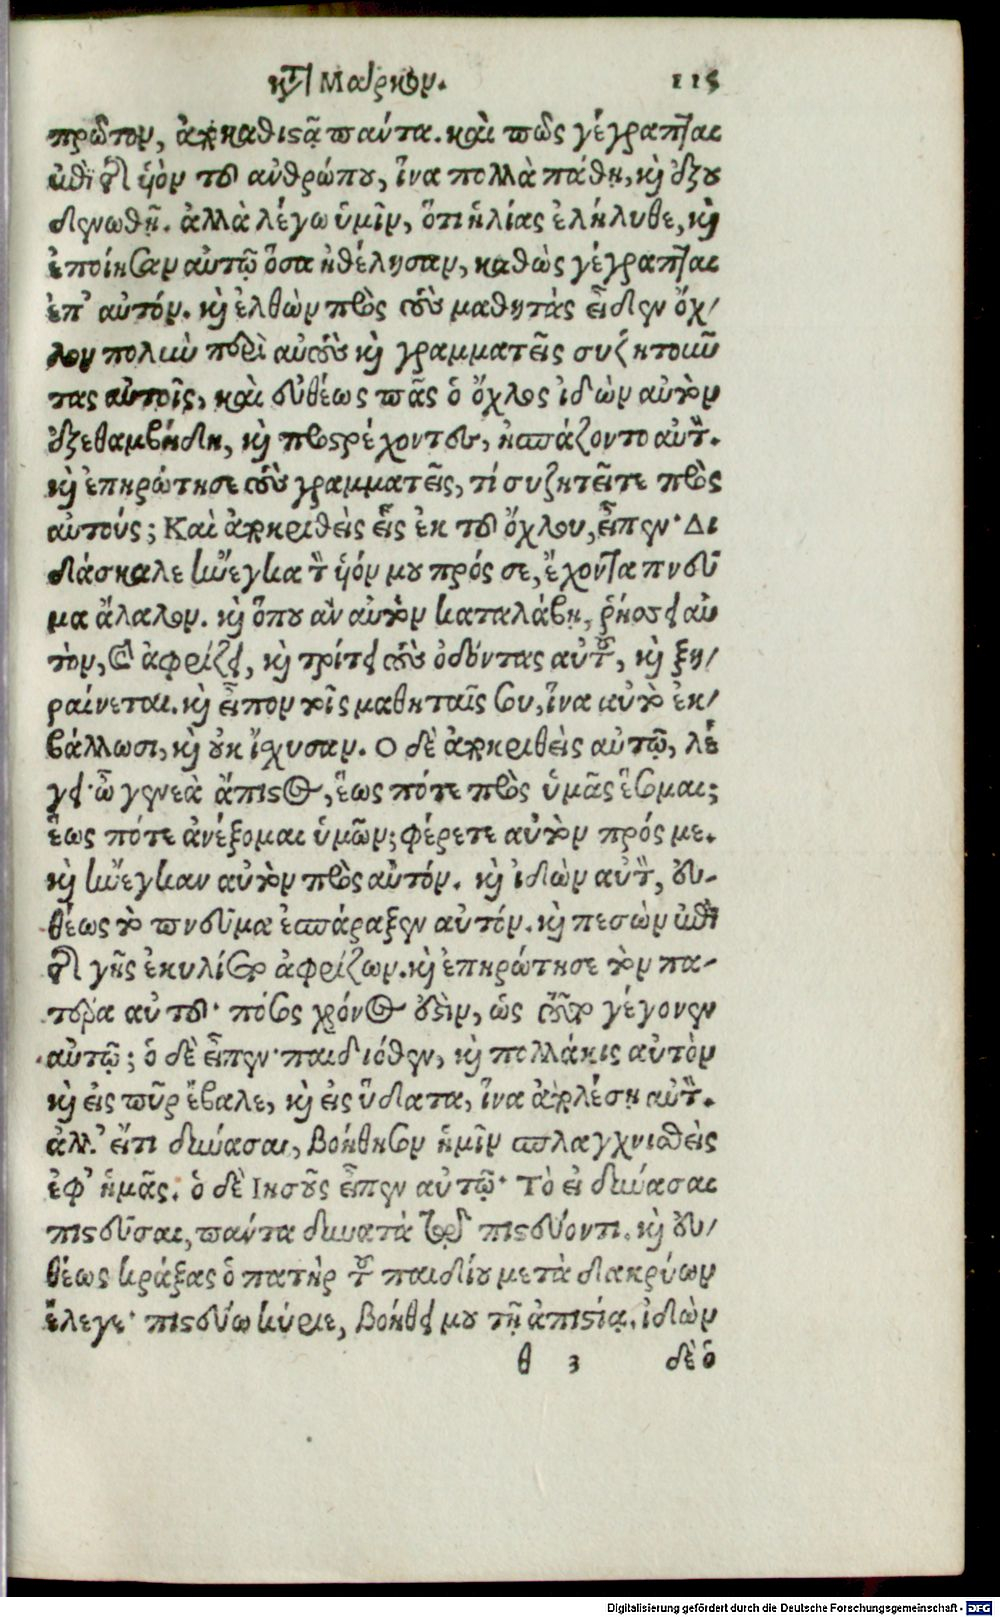 κτ Μάρκον. 115
πρῶτον, ἀποκαθιστᾷ πάντα. καὶ πῶς γέγραπται
ἐπὶ τὸν υἱὸν τοῦ ἀνθρώπου, ἵνα πολλὰ πάθῃ, καὶ ἐξου
δενωθῇ. ἀλλὰ λέγω ὑμῖν, ὅτι ἠλίας ἐλήλυθε, καὶ
ἐποίησαν αὐτῷ ὅσα ἠθέλησαν, καθὼς γέγραπται
ἐπ' αὐτόν. καὶ ἐλθὼν πρὸς τοὺς μαθητὰς εἶδεν ὄχ/
λον πολιὺ περὶ αὐτοὺς καὶ γραμματεῖς συζητοιῦ
τας αὐτοῖς, καὶ εὐθέως πᾶς ὁ ὄχλος ἰδὼν αὐτὸν
ἐξεθαμβήθη, καὶ προστρέχοντες, ἠσπάζοντο αὐτόν.
καὶ ἐπηρώτησε τοὺς γραμματεῖς, τί συζητεῖτε πρὸς
αὐτούς; Καὶ ἀποκριθεὶς εἷς ἐκ τοῦ ὄχλου, εἶπεν· Δι
δάσκαλε ἤνεγκα τὸν υἱόν μου πρός σε, ἔχοντα πνεῦ
μα ἄλαλον. καὶ ὅπου ἂν αὐτὸν καταλάβῃ, ῥήσσει αὐ
τὸν, καὶ ἀφρίζει, καὶ τρίζει τοὺς ὀδόντας αὐτοῦ, καὶ ξη/
ραίνεται. καὶ εἶπον τοῖς μαθηταῖς σου, ἵνα αὐτὸ ἐκ/
βάλλωσι, καὶ οὐκ ἴσχυσαν. Ο δὲ ἀποκριθεὶς αὐτῷ, λέ
γει· ὦ γενεὰ ἄπιστος, ἕως πότε πρὸς ὑμᾶς ἔσομαι;
ἕως πότε ἀνέξομαι ὑμῶν; φέρετε αὐτὸν πρός με.
καὶ ἤνεγκαν αὐτὸν πρὸς αὐτόν. καὶ ἰδὼν αὐτόν, εὐ-
θέως τὸ πνεῦμα ἐσπάραξεν αὐτόν. καὶ πεσὼν ἐπὶ
τῆς γῆς ἐκυλίετο ἀφρίζων. καὶ ἐπηρώτησε τὸν πα-
τέρα αὐτοῦ· πόσος χρόνος ἐστὶν, ὡς τοῦτο γέγονεν
αὐτῷ; ὁ δὲ εἶπεν· παιδιόθεν, καὶ πολλάκις αὐτὸν
καὶ εἰς πῦρ ἔβαλε, καὶ εἰς ὕδατα, ἵνα ἀπολέσῃ αὐτόν.
ἀλλ' εἴτι δύνασαι, βοήθησον ἡμῖν σπλαγχνισθεὶς
ἐφ' ἡμᾶς. ὁ δὲ Ιησοῦς εἶπεν αὐτῷ· Τὸ εἰ δύνασαι
πιστεῦσαι, πάντα δυνατὰ τῷ πιστεύοντι. καὶ εὐ/
θέως κράξας ὁ πατὴρ τοῦ παιδίου μετὰ δακρύων
ἔλεγε· πιστεύω κύριε, βοήθει μου τῇ ἀπιστίᾳ. ἰδὼν
θ 3 δὲ ὁ
Digitalisierung gefördert durch die Deutsche Forschungsgemeinschaft - DFG